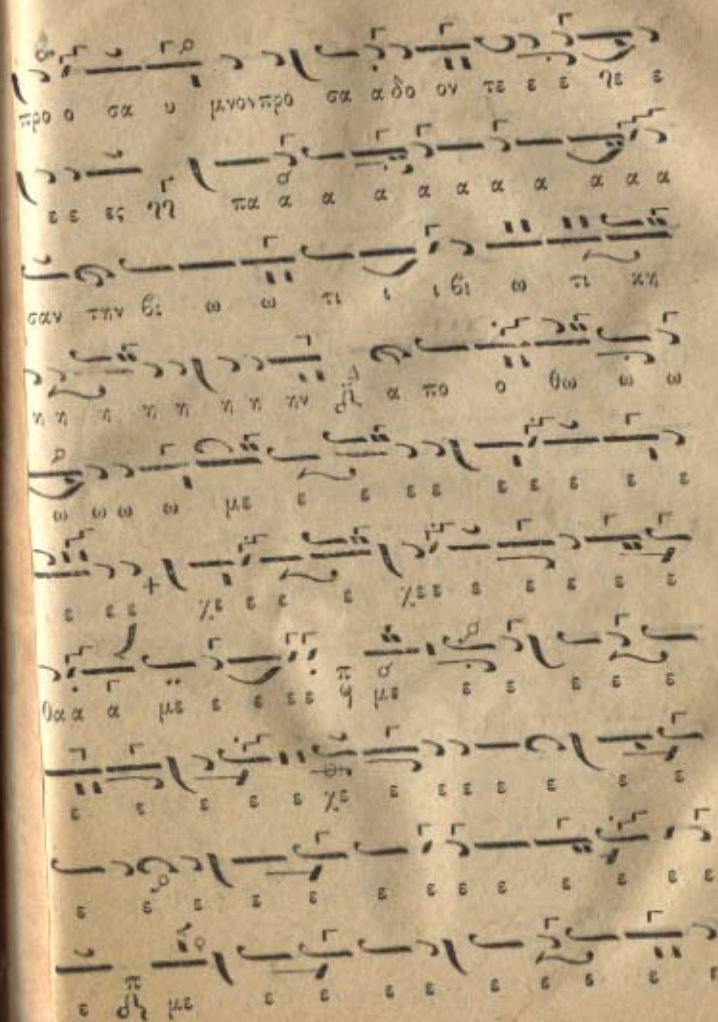 προ ο σα υ μνον προ σα α δο ον τε ε ε λε ε
ε ε ες πα α α α α α α α α α α
σαν την βι ω ω τι ι ι βι ω τι κη
η η η η η η η ην α πο ο θω ω ω
ω ω ω ω με ε ε ε ε ε ε ε ε ε
ε ε ε χε ε ε ε χε ε ε ε ε ε ε
θα α α με ε ε ε ε π με ε ε ε ε ε
ε ε ε ε ε χε ε ε ε ε ε ε
ε ε ε ε ε ε ε ε ε ε ε ε
ε π με ε ε ε ε ε ε ε ε ε